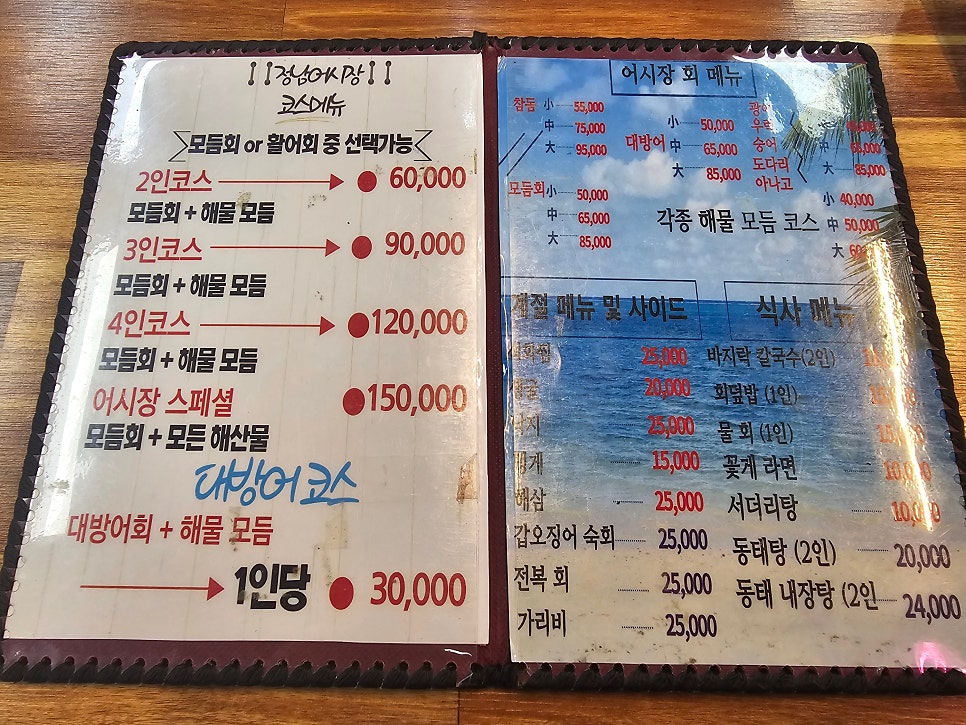 정남어시장
코스메뉴
모듬회 or 활어회 중 선택가능
2인코스 60,000
모듬회 + 해물 모듬
3인코스 90,000
모듬회 + 해물 모듬
4인코스 120,000
모듬회 + 해물 모듬
어시장 스페셜 150,000
모듬회 + 모든 해산물
대방어 코스
대방어회 + 해물 모듬
1인당 30,000
어시장 회 메뉴
참돔 小 55,000
中 75,000
大 95,000
모듬회 小 50,000
中 65,000
大 85,000
대방어
小 50,000
中 65,000
大 85,000
광어
우럭
숭어
도다리
아나고
小
中
大 85,000
각종 해물 모듬 코스
小 40,000
中 50,000
大
계절 메뉴 및 사이드
25,000
20,000
25,000
15,000
해삼 25,000
갑오징어 숙회 25,000
전복 회 25,000
가리비 25,000
식사 메뉴
바지락 칼국수(2인)
회덮밥 (1인)
물 회 (1인)
꽃게 라면 10,000
서더리탕 10,000
동태탕 (2인) 20,000
동태 내장탕 (2인 24,000